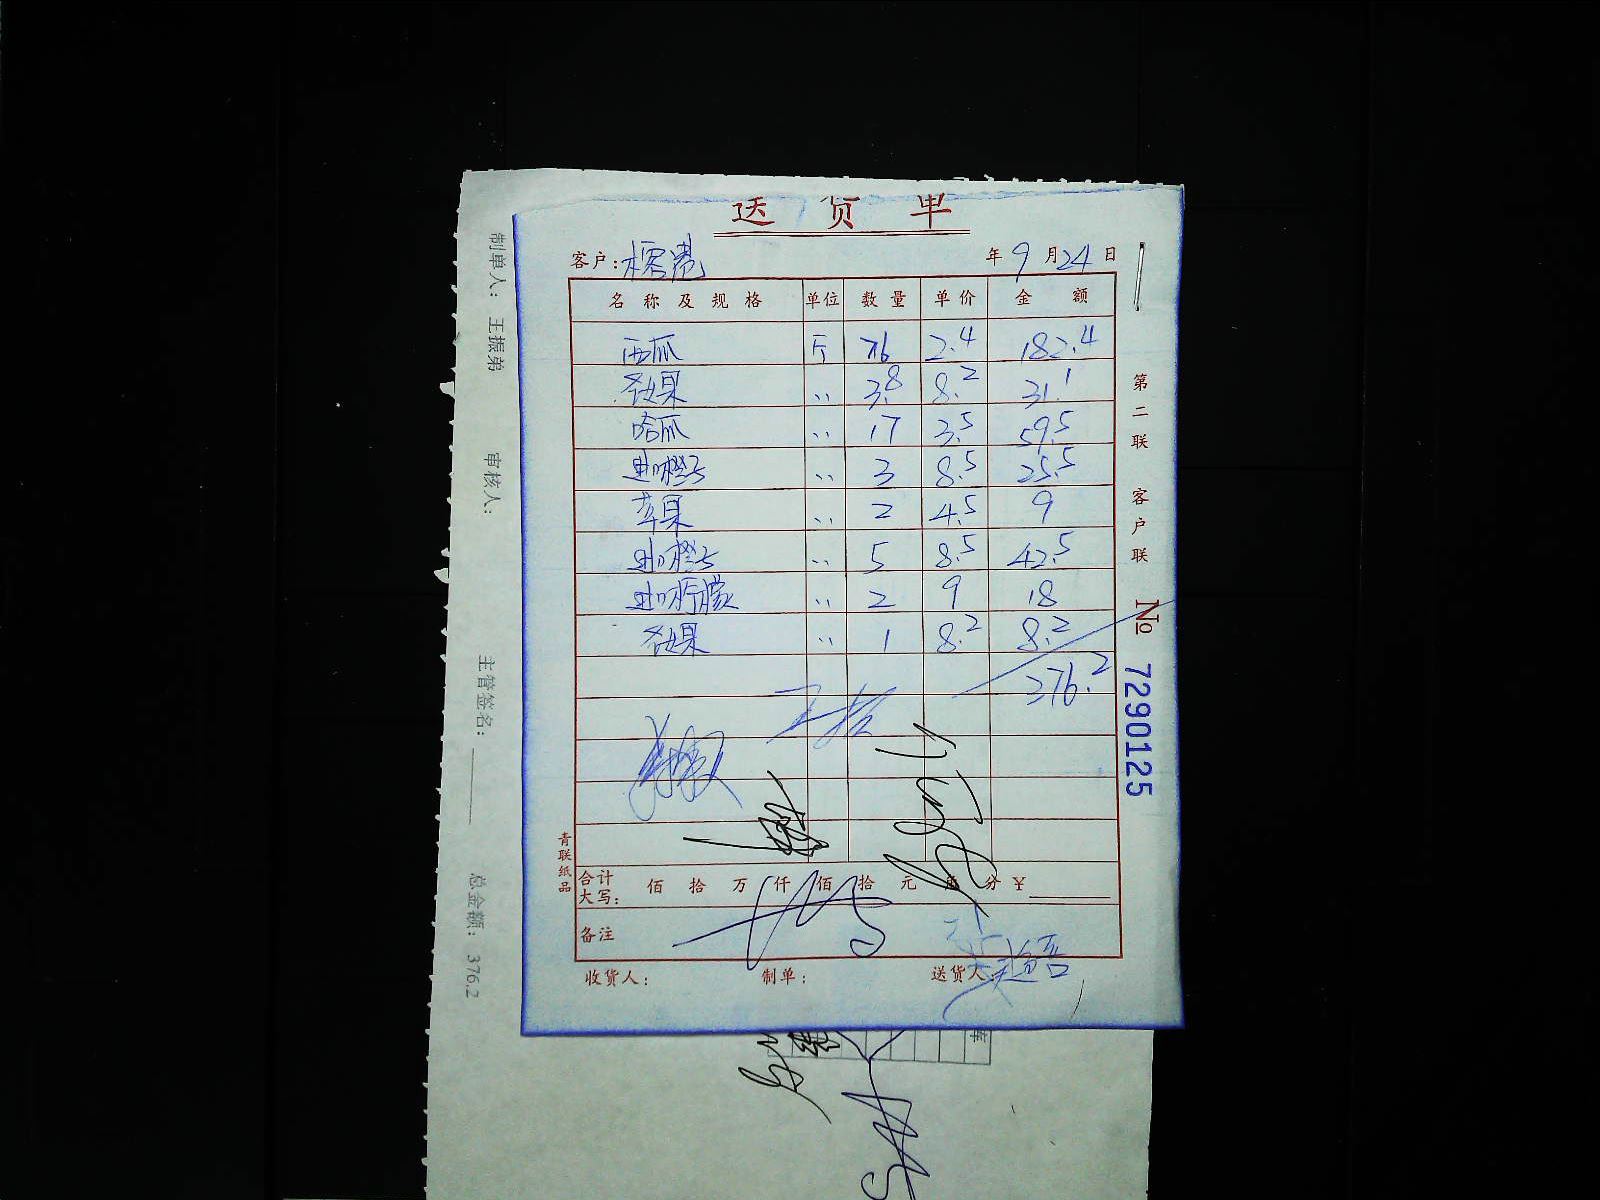 送货单
客户: 年9月24日
名称及规格 单位 数量 单价 金额
西瓜 斤 76 2.4 182.4
圣女果 〃 3.8 8.2 31.1
哈瓜 〃 17 3.5 59.5
进口橙子 〃 3 8.5 25.5
苹果 〃 2 4.5 9
进口橙子 〃 5 8.5 42.5
进口柠檬 〃 2 9 18
圣女果 〃 1 8.2 8.2
376.2
合计大写: 佰 拾 万 仟 佰 拾 元 角 分 ¥
备注
收货人: 制单: 送货人:
青联纸品
第二联 客户联
№ 7290125
制单人: 王振弟 审核人: 主管签名: 总金额: 376.2
库